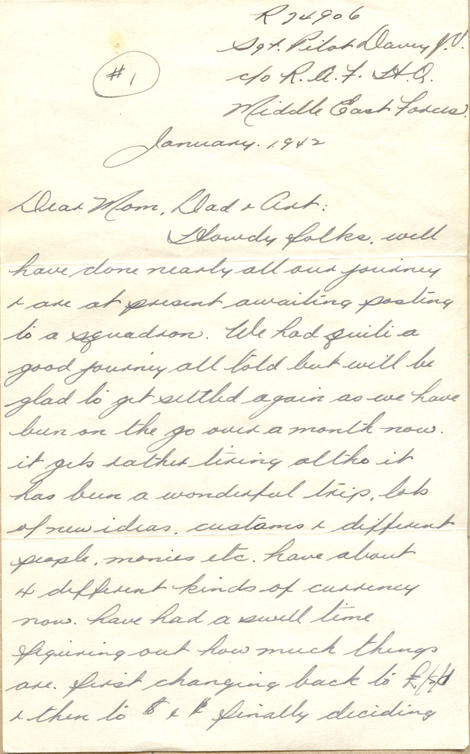 R74906
Sgt. Pilot Davey J.V.
c/o R.A.F. H.Q.
Middle East Forces.
#1
January. 1942
Dear Mom, Dad & Art:
Howdy folks, well
have done nearly all our journey
& are at present awaiting posting
to a squadron. We had quite a
good journey all told but will be
glad to get settled again as we have
been on the go over a month now.
it gets rather tiring altho it
has been a wonderful trip, lots
of new ideas, customs & different
people, monies etc. have about
4 different kinds of currency
now. have had a swell time
figuring out how much things
are. first changing back to £/s/d
& then to $ & ¢ finally deciding